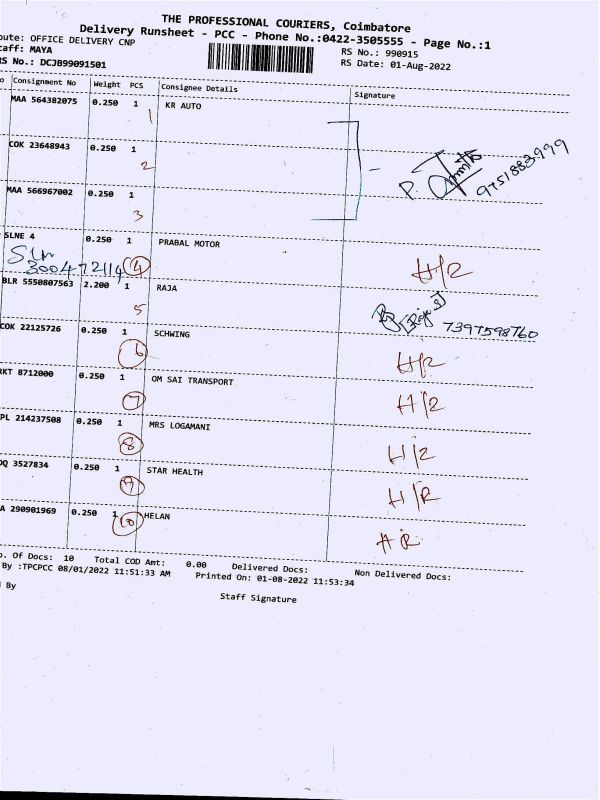 THE PROFESSIONAL COURIERS, Coimbatore
Delivery Runsheet - PCC - Phone No.:0422-3505555 - Page No.:1
oute: OFFICE DELIVERY CNP
taff: MAYA
RS No.: 990915
RS No.: DCJB99091501
RS Date: 01-Aug-2022
o Consignment No Weight PCS Consignee Details Signature
MAA 564382075 0.250 1 KR AUTO
1
COK 23648943 0.250 1
2
P. 9751883999
MAA 566967002 0.250 1
3
SLNE 4 0.250 1 PRABAL MOTOR
Sln
300472114 4 H/R
BLR 5550807563 2.200 1 RAJA
5 7397598760
COK 22125726 0.250 1 SCHWING
6 H/R
RKT 8712000 0.250 1 OM SAI TRANSPORT
7 H/R
PL 214237508 0.250 1 MRS LOGAMANI
8 H/R
DQ 3527834 0.250 1 STAR HEALTH
9 H/R
A 290901969 0.250 1 HELAN
10 H R
o. Of Docs: 10 Total COD Amt: 0.00 Delivered Docs: Non Delivered Docs:
By :TPCPCC 08/01/2022 11:51:33 AM Printed On: 01-08-2022 11:53:34
By
Staff Signature